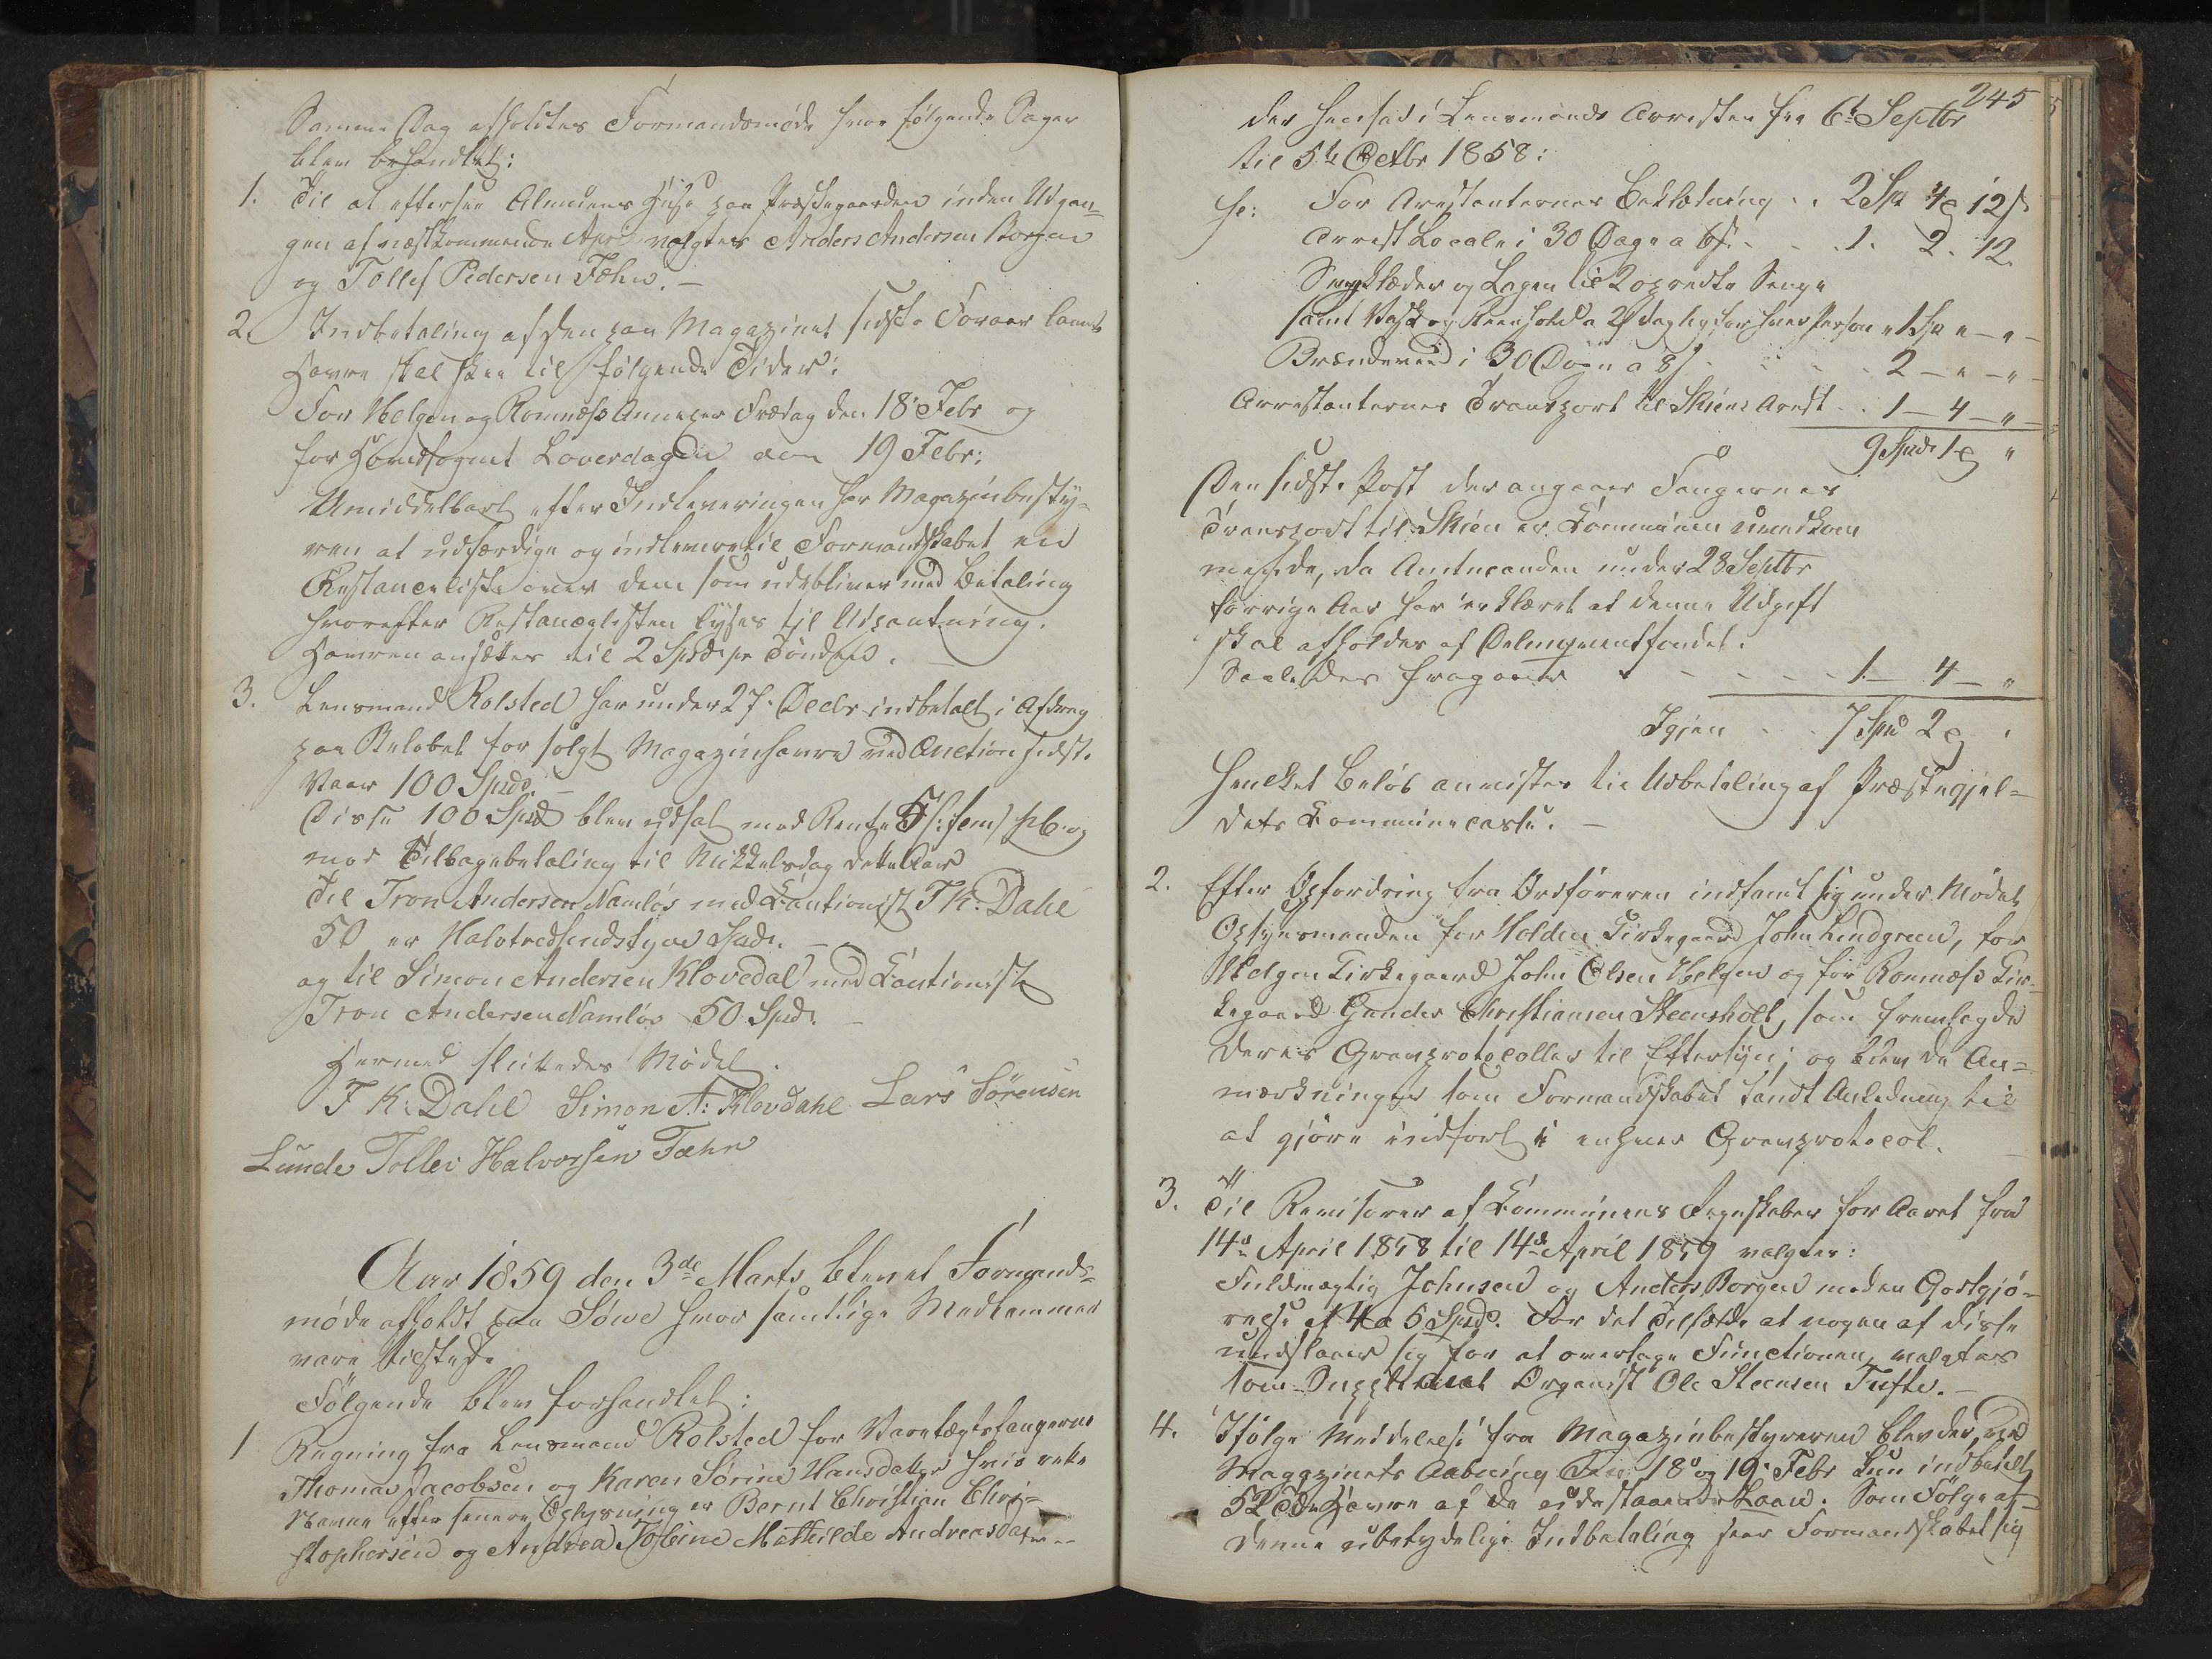 Samme Dag afholdtes Formandsmøde hvor følgende Sager
blev behandlet:
1. Til at efterse Almuens Huse paa Præstegaarden inden Udgan-
gen af næstkommende April valgtes Anders Andersen Borgen
og Tollef Pedersen Fæhn. –
2. Indbetaling af den paa Magazinet sidste Foraar laante
Havre skal skee til følgende Tider:
For Helgen og Romnæss Annexer Fredag den 18 Febr og
for Hovedsognet Løverdagen den 19 Febr:
Umiddelbart efter Indleveringen har Magazinbesty-
ren at udfærdige og indlevere til Formandskabet en
Restanceliste over dem som udebliver med Betaling
hvorefter Restancelisten lyses til Udpantning.
Havren ansættes til 2 Spd pr Tønde.
3. Lensmand Rolsted har under 27 Decbr indbetalt i Afdrag
paa Beløbet for solgt Magazinhavre ved Auction sidste
Vaar 100 Spd. –
Disse 100 Spd blev udsat mod Rente 5 /: fem/ pCt og
mod Tilbagebetaling til Mikkelsdag dette Aar
Til Tron Andersen Namløs med Kautionist F K. Dahl
50 er Halvtredsindstyve Spd. –
og til Simon Andersen Klovedal med Kautionist
Tron Andersen Namløs 50 Spd. –
Hermed sluttedes Mødet.
F K. Dahl Simon A: Klovdahl Lars Sørensen
Lunde Tollei Halvorsen Fæhn
Aar 1859 den 3de Marts blev et Formands-
møde afholdt paa Søwe hvor samtlige Medlemmer
vare tilstede
Følgende blev forhandlet:
1 Regning fra Lensmand Rolsted for Varetægtsfangerne
Thomas Jacobsen og Karen Sørine Hansdatter hvis rette
Navne efter senere Oplysning er Bernt Christian Chri-
stophersen og Andrea Mathilde Andreasdatter
245
der hensad i Lensmands Arresten fra 6te Septbr
til 5te Octbr 1858:
For Arestanternes Beklædning . . 2 Spd 4 12 s
Arrest Locale i 30 Dage a 6 s. . . 1. 2. 12.
Sengklæder og Lagen til 2 opredte Senge
samt Vask og Reenhold a 2 s daglig for hver Person 1 Spd " – " –
Brændeved i 30 Døgn a 8 s . . . 2 – " – " –
Arrestanternes Transport til Skiens Arest . . 1 – 4 – " –
9 Spd 1 "
Den sidste Post der angaaer Fangernes
Transport til Skien er Kommunen uvedkom
mende, da Amtmanden under 28 Septbr
forrige Aar har erklæret at denne Udgift
skal afholdes af Delinquentfondet.
Saaledes fragaaer . - - - - 1 – 4 – "
Igjen . . 7 Spd 2
hvilket Beløb anvistes til Udbetaling af Præstegjel-
dets Kommunecasse. –
2. Efter Opfordring fra Ordføreren indfandt sig under Mødet
Opsynsmanden for Holden Kirkegaard John Lindgreen, for
Helgen Kirkegaard John Olsen Helgen og for Romnæss Kir-
kegaard Gunder Christiansen Steensholt, som fremlagde
deres Gravprotocoller til Eftersyn; og blev de An-
mærkninger som Formandskabet fandt Anledning til
at gjøre indført i enhver Gravprotocol.
3. Til Revisorer af Kommunens Regnskaber for Aaret fra
14de April 1858 til 14de April 1859 valgtes:
Fuldmægtig Johnsen og Anders Borgen mod en Godtgjø-
relse af 4 a 5 Spd. For det Tilfælde at nogen af disse
undslaaer sig for at overtage Functionen, valgtes
som Suppleant Organist Ole Steensen Tufte. –
4. Ifølge Meddelelse fra Magazinbestyreren blev der ved
Magazinets Aabning den 18 og 19 Febr kun indbetalt
52 Tdr Havre af de udestaaende Laan. Som Følge af
denne ubetydelige Indbetaling saae Formandskabet sig